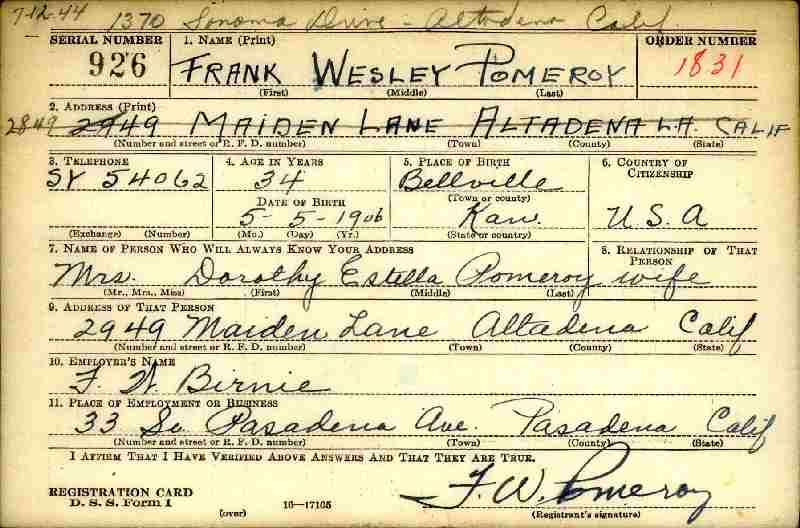 7-12-44 1370 Sonoma Drive - Altadena Calif.
SERIAL NUMBER 1. NAME (Print) ORDER NUMBER
926 FRANK WESLEY POMEROY 1831
(First) (Middle) (Last)
2. ADDRESS (Print)
2849 2949 MAIDEN LANE ALTADENA L.A. CALIF
(Number and street or R. F. D. number) (Town) (County) (State)
3. TELEPHONE 4. AGE IN YEARS 5. PLACE OF BIRTH 6. COUNTRY OF CITIZENSHIP
SY 54062 34 Bellville
(Town or county)
DATE OF BIRTH
5-5-1906 Kan. U.S.A
(Exchange) (Number) (Mo.) (Day) (Yr.) (State or country)
7. NAME OF PERSON WHO WILL ALWAYS KNOW YOUR ADDRESS 8. RELATIONSHIP OF THAT PERSON
Mrs. Dorothy Estella Pomeroy wife
(Mr., Mrs., Miss) (First) (Middle) (Last)
9. ADDRESS OF THAT PERSON
2949 Maiden Lane Altadena Calif
(Number and street or R. F. D. number) (Town) (County) (State)
10. EMPLOYER'S NAME
F. W. Birnie
11. PLACE OF EMPLOYMENT OR BUSINESS
33 So. Pasadena Ave. Pasadena Calif
(Number and street or R. F. D. number) (Town) (County) (State)
I AFFIRM THAT I HAVE VERIFIED ABOVE ANSWERS AND THAT THEY ARE TRUE.
F. W. Pomeroy
REGISTRATION CARD
D. S. S. Form 1 (over) 16—17105 (Registrant's signature)